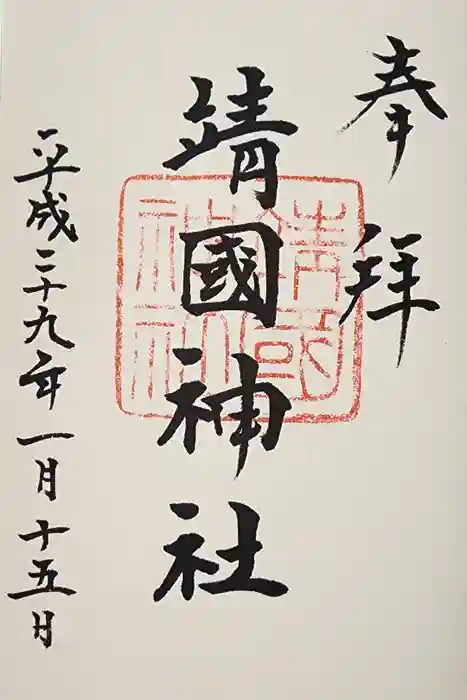 奉拜
靖國神社
靖国神社
平成二十九年一月十五日